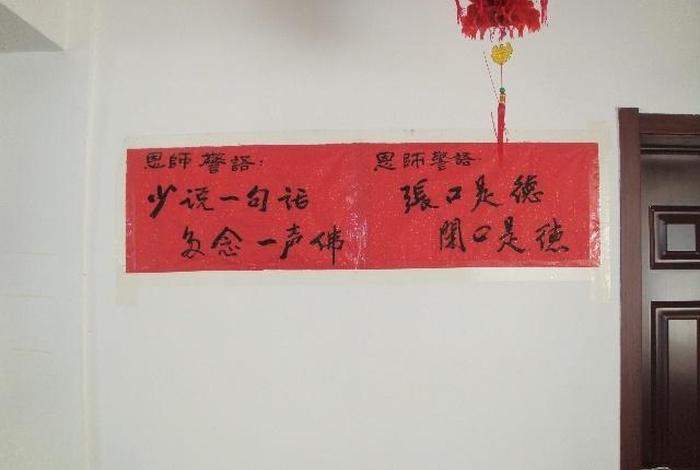 恩師警語:
少说一句话
多念一声佛
恩師警語
張口是德
閉口是德